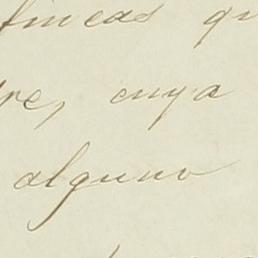 fincas qu
re, cuya
alguno